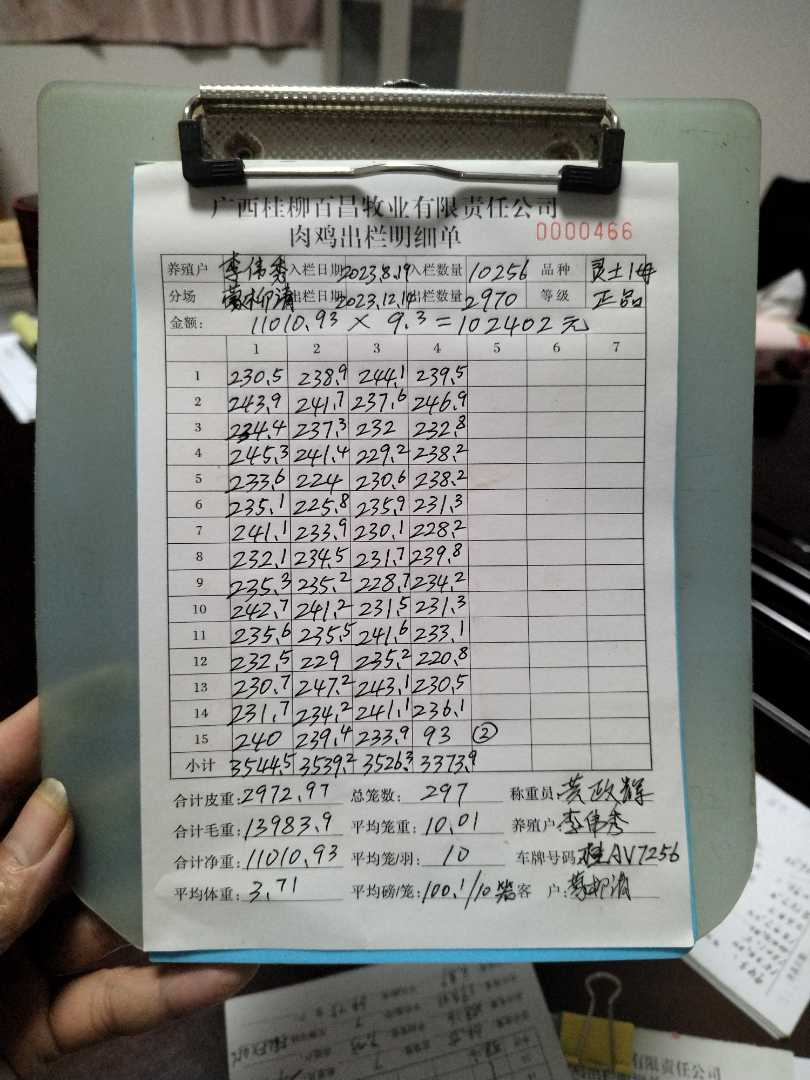 广西桂柳百昌牧业有限责任公司
肉鸡出栏明细单 0000466
养殖户 李伟秀 入栏日期 2023.8.19 入栏数量 10256 品种 灵土1母
分场 出栏日期 2023.12.14 出栏数量 2970 等级 正品
金额: 11010.93 × 9.3 = 102402元
1 2 3 4 5 6 7
1 230.5 238.9 244.1 239.5
2 243.9 241.7 237.6 246.9
3 234.4 237.3 232 232.8
4 245.3 241.4 229.2 238.2
5 233.6 224 230.6 238.2
6 235.1 225.8 235.9 231.3
7 241.1 233.9 230.1 228.2
8 232.1 234.5 231.7 239.8
9 235.3 235.2 228.7 234.2
10 242.7 241.2 231.5 231.3
11 235.6 235.5 241.6 233.1
12 232.5 229 235.2 220.8
13 230.7 247.2 243.1 230.5
14 231.7 234.2 241.1 236.1
15 240 239.4 233.9 93 ②
小计 3544.5 3539.2 3526.3 3373.9
合计皮重: 2972.97 总笼数: 297 称重员: 黄政辉
合计毛重: 13983.9 平均笼重: 10.01 养殖户: 李伟秀
合计净重: 11010.93 平均笼/羽: 10 车牌号码: 桂AV7256
平均体重: 3.71 平均磅/笼: 100.1/10 客 户:
有限责任公司